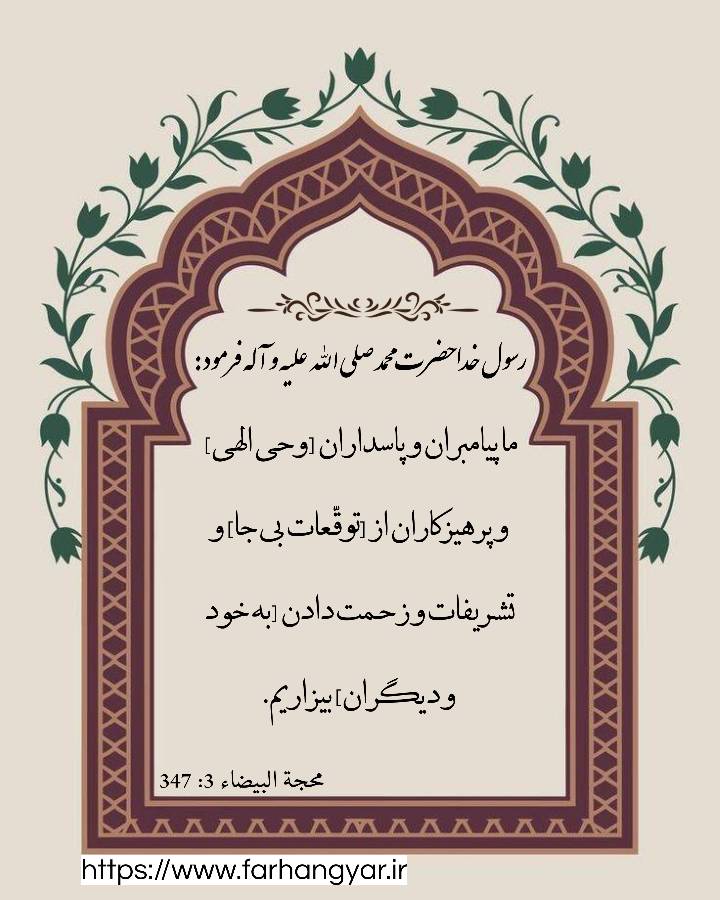 رسول خدا حضرت محمد صلی الله علیه و آله فرمود:
ما پیامبران و پاسداران [وحی الهی]
و پرهیزکاران از [توقّعات بی جا] و
تشریفات و زحمت دادن [به خود
و دیگران] بیزاریم.
محجة البیضاء 3: 347
https://www.farhangyar.ir